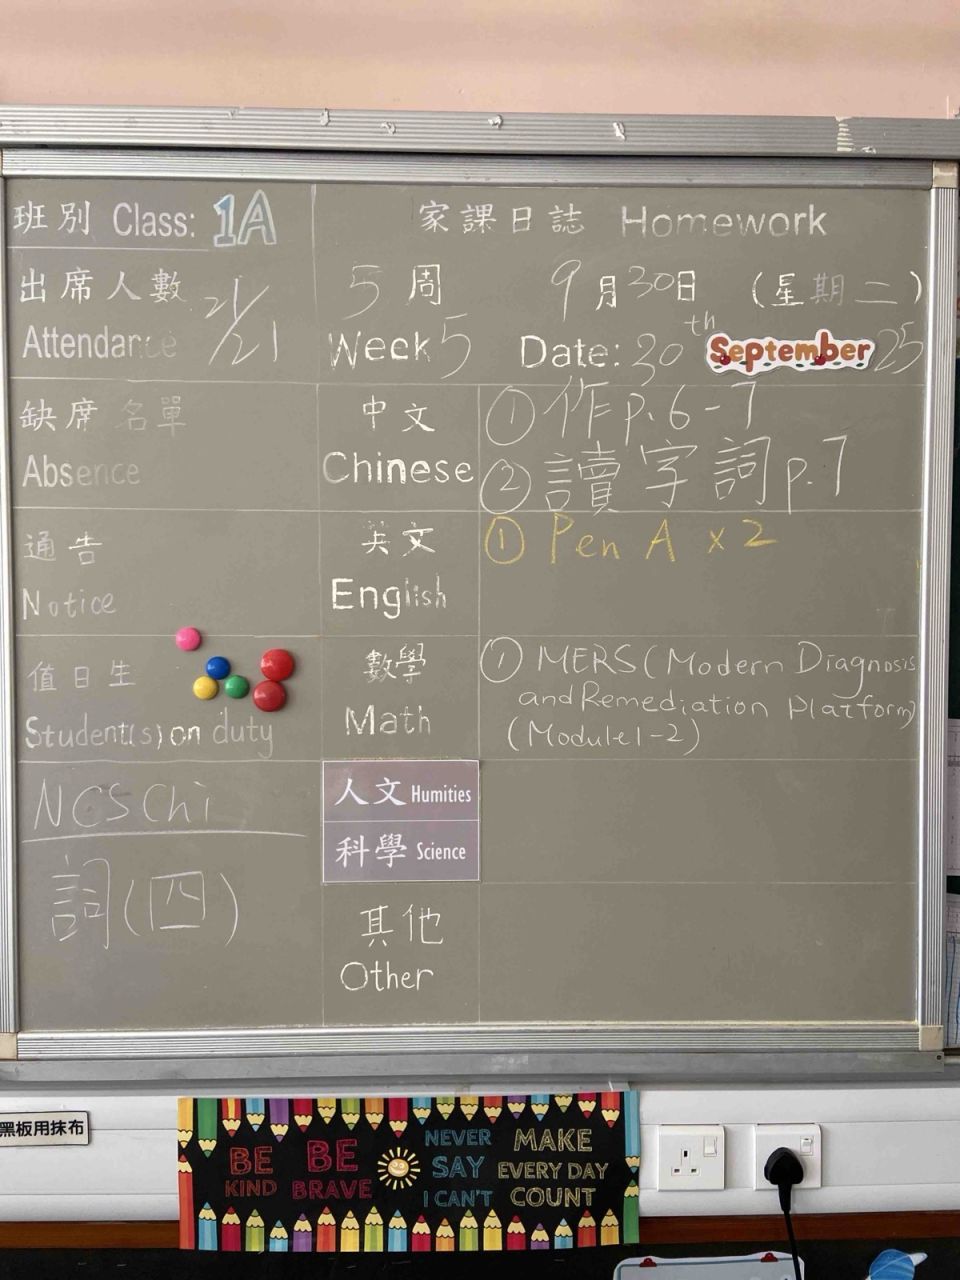 班別 Class: 1A
家課日誌 Homework
出席人數 21/21
Attendance
5 周 9月30日 (星期二)
Week 5 Date: 30th September 25
缺席名單
Absence
中文 ① 作 p.6-7
Chinese ② 讀字詞 p.7
通告
Notice
英文 ① Pen A x 2
English
值日生
Student(s) on duty
數學 ① MERS (Modern Diagnosis
and Remediation Platform)
Math (Module 1-2)
NCS Chi
詞(四)
人文 Humities
科學 Science
其他
Other
黑板用抹布
BE KIND
BE BRAVE
NEVER SAY I CAN'T
MAKE EVERY DAY COUNT